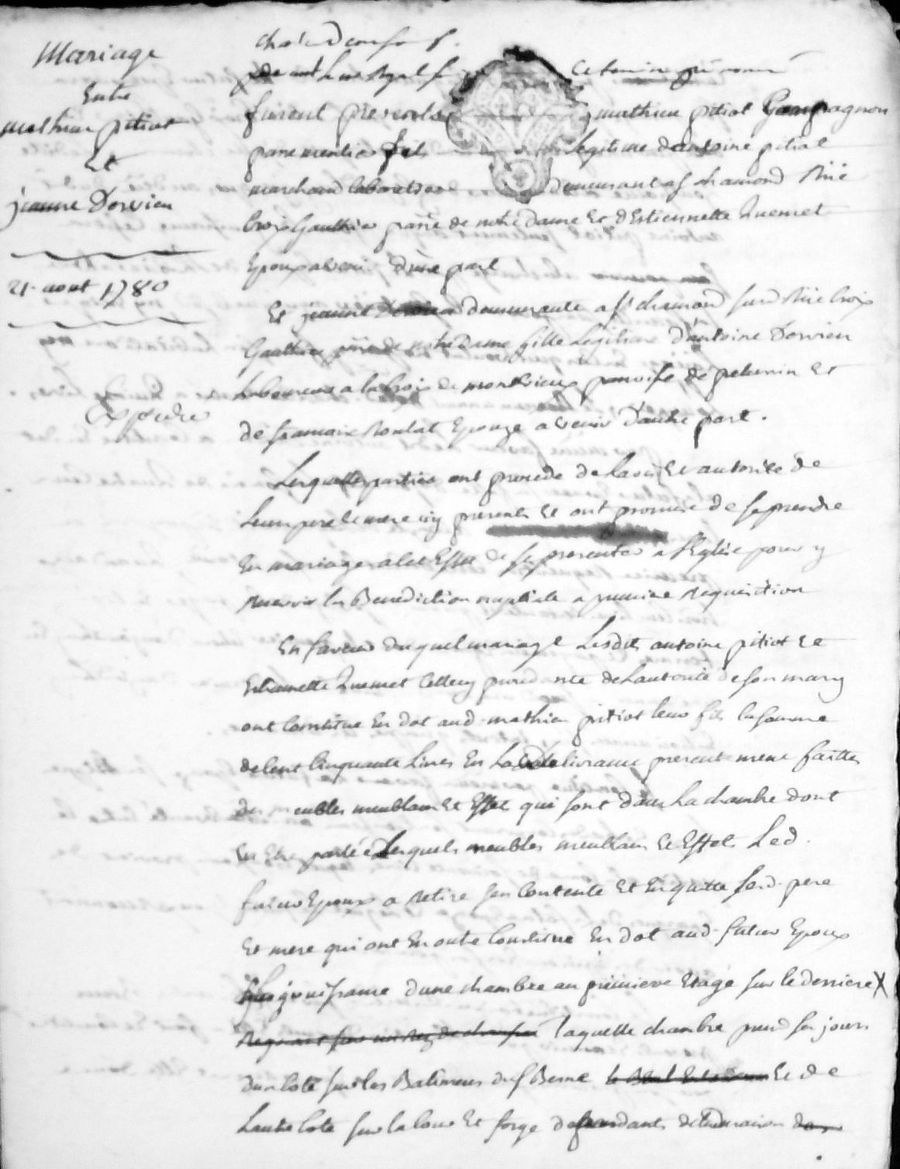 Mariage
Entre
Mathieu pitiot
Et
jeanne Dervieu
21 aout 1780
Expedié
furent presents mathieu pitiot Compagnon
parementier fils legitime d'antoine pitiot
marchand laboureur demeurant a st chamond Rüe
Croix Gauthier parsse de notre Dame Et d'Estiennette
Epoux avenir d'une part
Et jeanne demeurante a st chamond susd Rüe Croix
Gauthier parsse de notre Dame fille Legitime d'antoine Dervieu
Laboureur a la Croix de monvieux parroisse de pelussin Et
de Epouze a venir D'autre part.
Lesquelles parties ont procede de L'avis Et autorité de
Leurs pere Et mere icy presents Et ont promis de se prendre
En mariage a Cet Effet de se presenter a l'Eglise pour y
recevoir la Benediction nuptiale a premiere Requisition
En faveur duquel mariage Lesdits antoine pitiot Et
Estiennette Celle cy procedante de L'autorité de son mary
ont Constitué En dot aud. mathieu pitiot leur fils la somme
de Cent Cinquante Livres En La delivrance presentement faitte
des meubles meublans Et Effet qui sont dans La chambre dont
Lesquels meubles meublans Et Effets Led.
futur Epoux a Retiré s'en Contente Et En quitte sesd. pere
Et mere qui ont En outre Constitué En dot aud. futur Epoux
La jouissance d'une chambre au premiere Etage sur le derriere X
laquelle chambre prend ses jours
d'un Coté sur les Batimens du sr Et de
L'autre Coté sur la Cour Et forge dependants de la maison